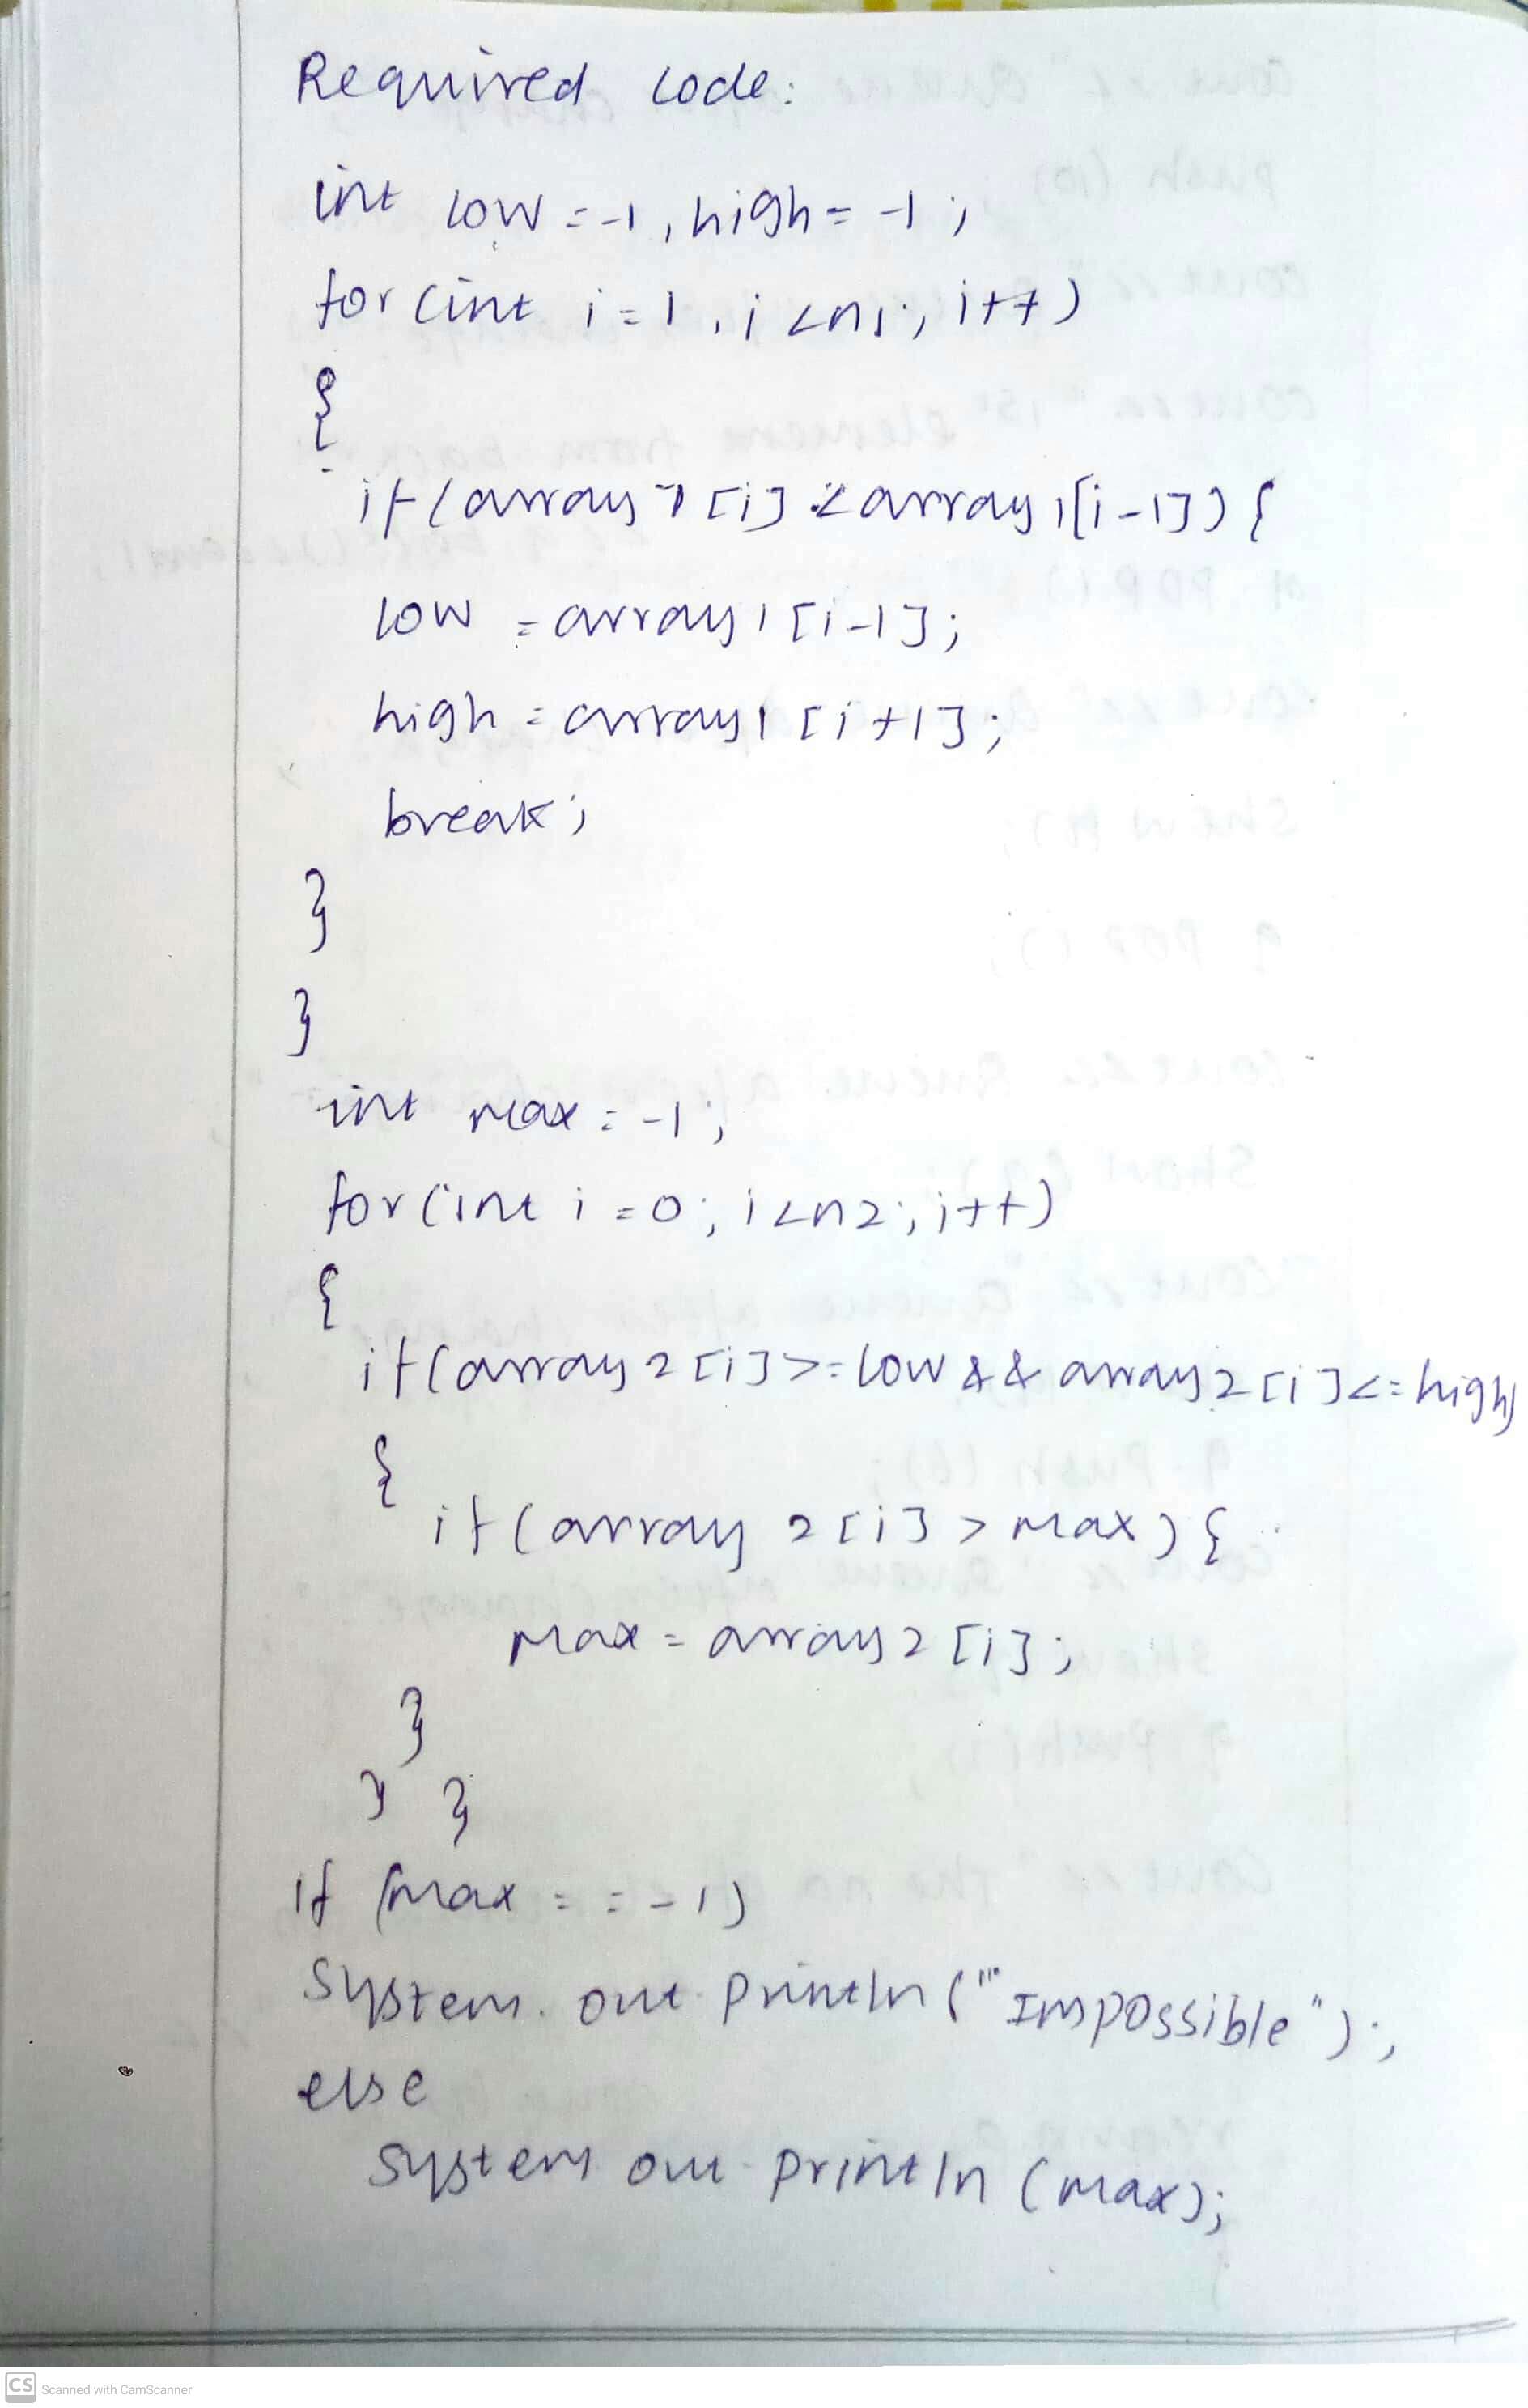 Required code:
int low = -1, high = -1;
for (int i = 1, i < n1; i++)
{
if (array 1 [i] < array 1[i-1]) {
low = array 1 [i-1];
high = array 1 [i+1];
break;
}
}
int max = -1;
for (int i = 0; i < n2; i++)
{
if (array 2 [i] >= low && array 2 [i] <= high)
{
if (array 2 [i] > max) {
max = array 2 [i];
}
} }
if (max == -1)
System. out. println ("Impossible");
else
system out. println (max);
CS Scanned with CamScanner